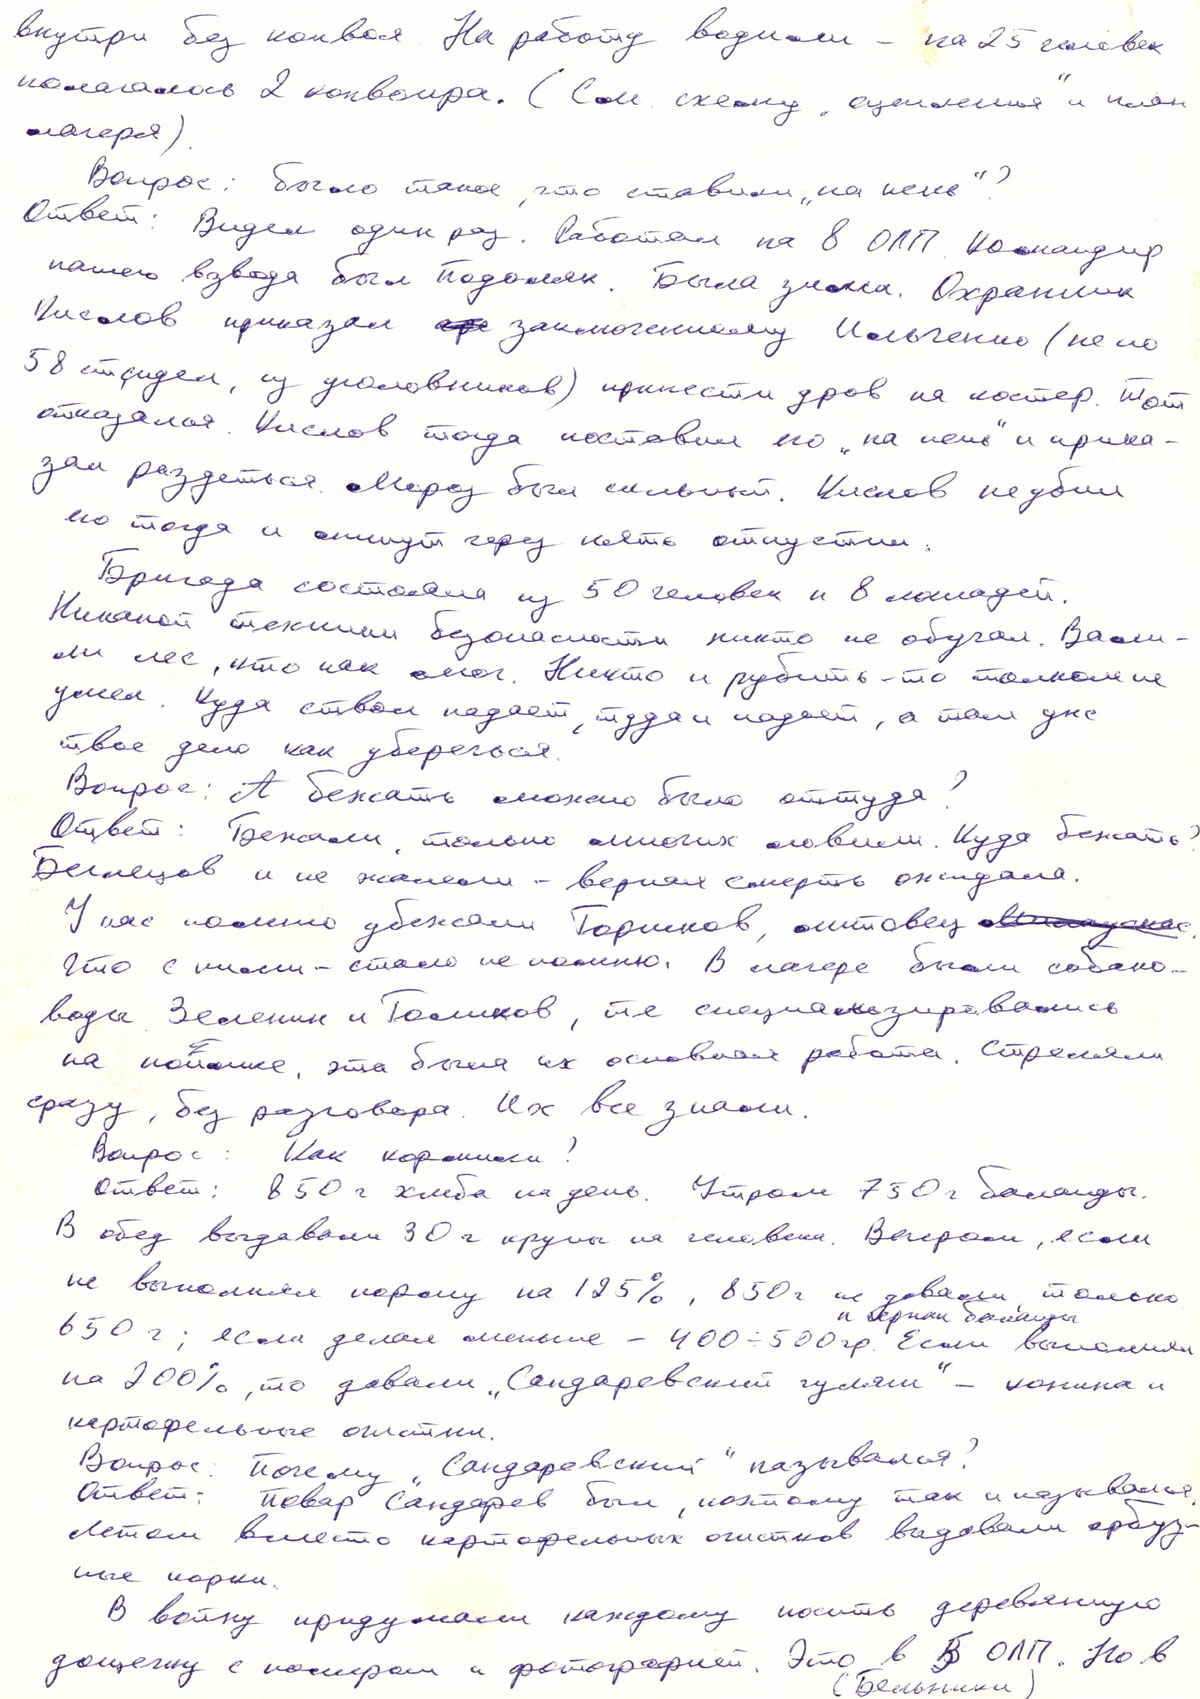 внутри без конвоя. На работу водили – на 25 человек
полагалось 2 конвоира. (См. схему „оцепления“ и план
лагеря).
Вопрос: было такое, что ставили „на пень“?
Ответ: Видел один раз. Работали на 8 ОЛП. Командир
нашего взвода был Подоляк. Была зима. Охранник
Кислов приказал заключенному Ильченко (не по
58 ст. сидел, из уголовников) принести дров на костер. Тот
отказался. Кислов тогда поставил его „на пень“ и прика-
зал раздеться. Мороз был сильный. Кислов не убил
его тогда и минут через пять отпустил.
Бригада состояла из 50 человек и 8 лошадей.
Никакой технике безопасности никто не обучал. Вали-
ли лес, кто как мог. Никто и рубить-то толком не
умел. Куда ствол падает, туда и падает, а там уж
твое дело как уберечься.
Вопрос: А бежать можно было оттуда?
Ответ: Бежали, только многих ловили. Куда бежать?
Беглецов и не жалели – верная смерть ожидала.
У нас помню убежали Горшков, литовец
Что с ними – стало не помню. В лагере были собако-
воды Зеленин и Голиков, те специализировались
на поимке, эта была их основная работа. Стреляли
сразу, без разговора. Их все знали.
Вопрос: Как кормили?
Ответ: 850 г хлеба на день. Утром 750 г баланды.
В обед выдавали 30 г крупы на человека. Вечером, если
не выполнял норму на 125%, 850 г не давали, только
650 г; если делал меньше – 400÷500 гр. Если выполняли
и баланды
на 200%, то давали „Сандаревский гуляш“ – конина и
картофельные очистки.
Вопрос: Почему „Сандаревский“ назывался?
Ответ: Повар Сандарев был, поэтому так и назывался.
Летом вместо картофельных очистков выдавали арбуз-
ные корки.
В войну придумали каждому носить деревянную
дощечку с номером и фотографией. Это в 5 ОЛП. Но в
(Бельники)